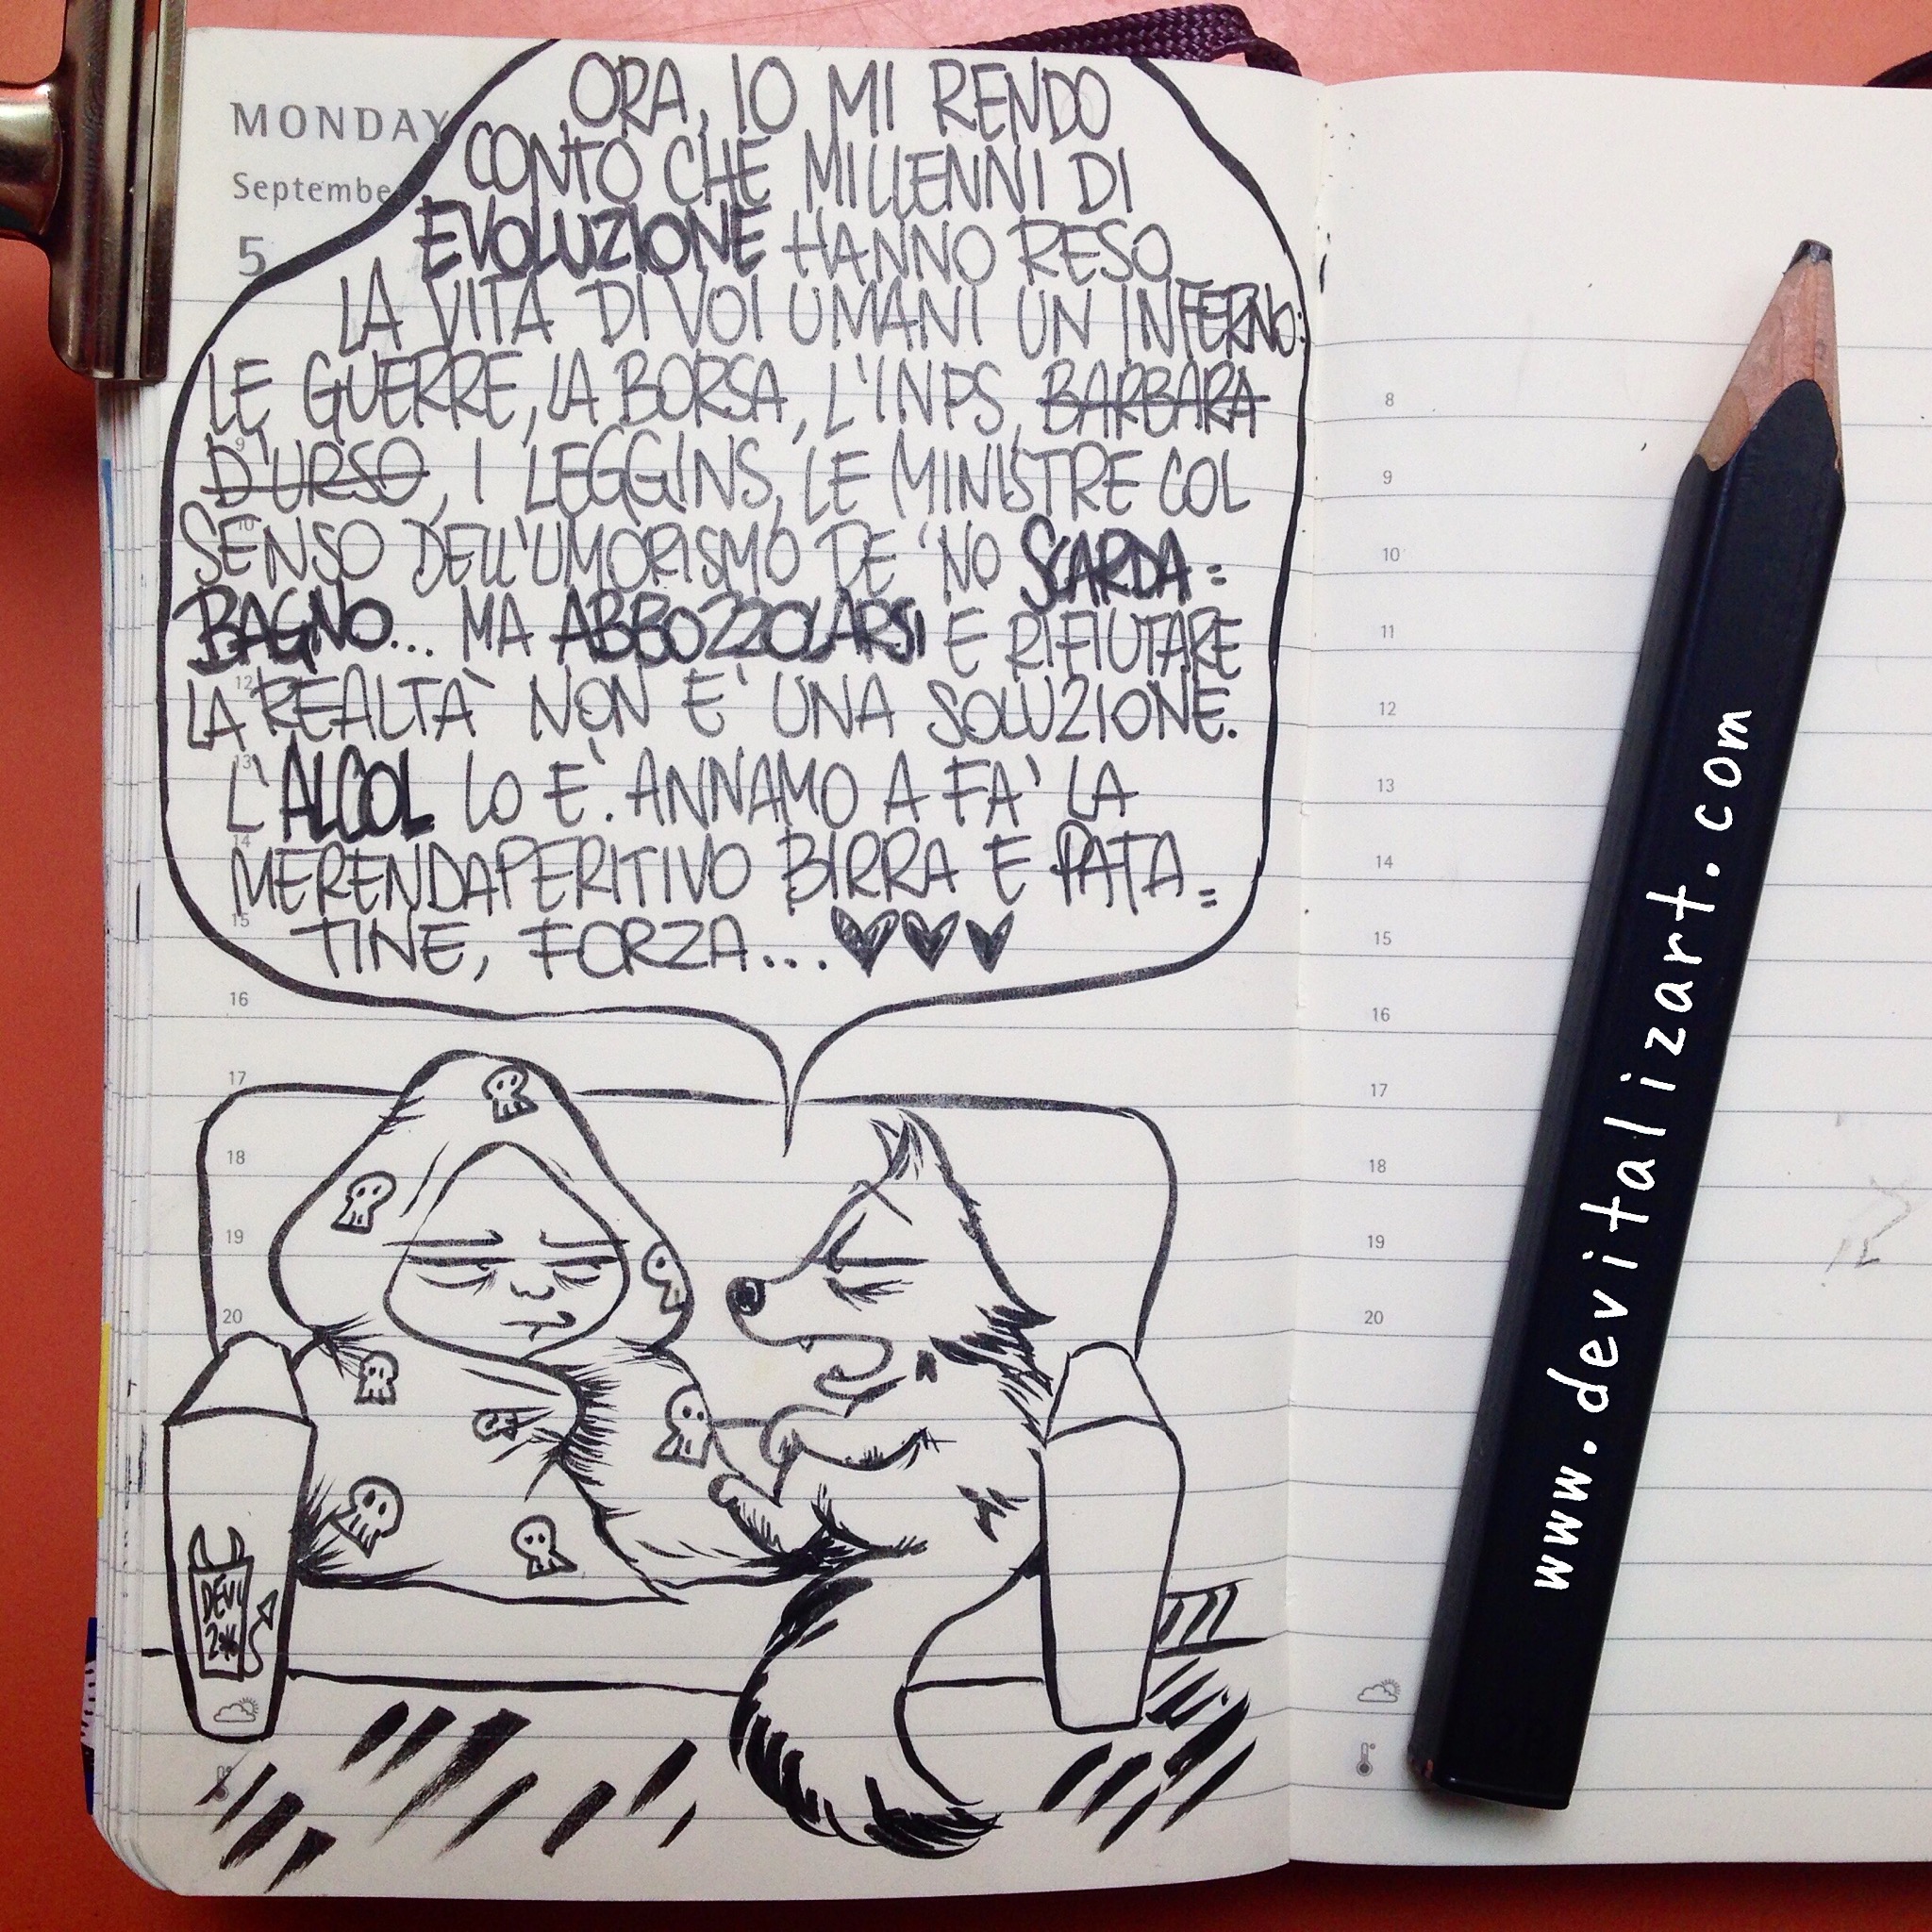 MONDAY
September
5
ORA, IO MI RENDO
CONTO CHE MILLENNI DI
EVOLUZIONE HANNO RESO
LA VITA DI VOI UMANI UN INFERNO:
LE GUERRE, LA BORSA, L'INPS, BARBARA
D'URSO, I LEGGINS, LE MINISTRE COL
SENSO DELL'UMORISMO DE 'NO SCARDA=
BAGNO... MA ABBOZZOLARSI E RIFIUTARE
LA REALTÀ NON E' UNA SOLUZIONE.
L'ALCOL LO E'. ANNAMO A FA' LA
MERENDAPERITIVO BIRRA E PATA=
TINE, FORZA... ♥♥♥
9
10
12
13
14
15
16
17
18
19
20
DEVI
2016
8
9
10
11
12
13
14
15
16
17
18
19
20
www.devitalizart.com